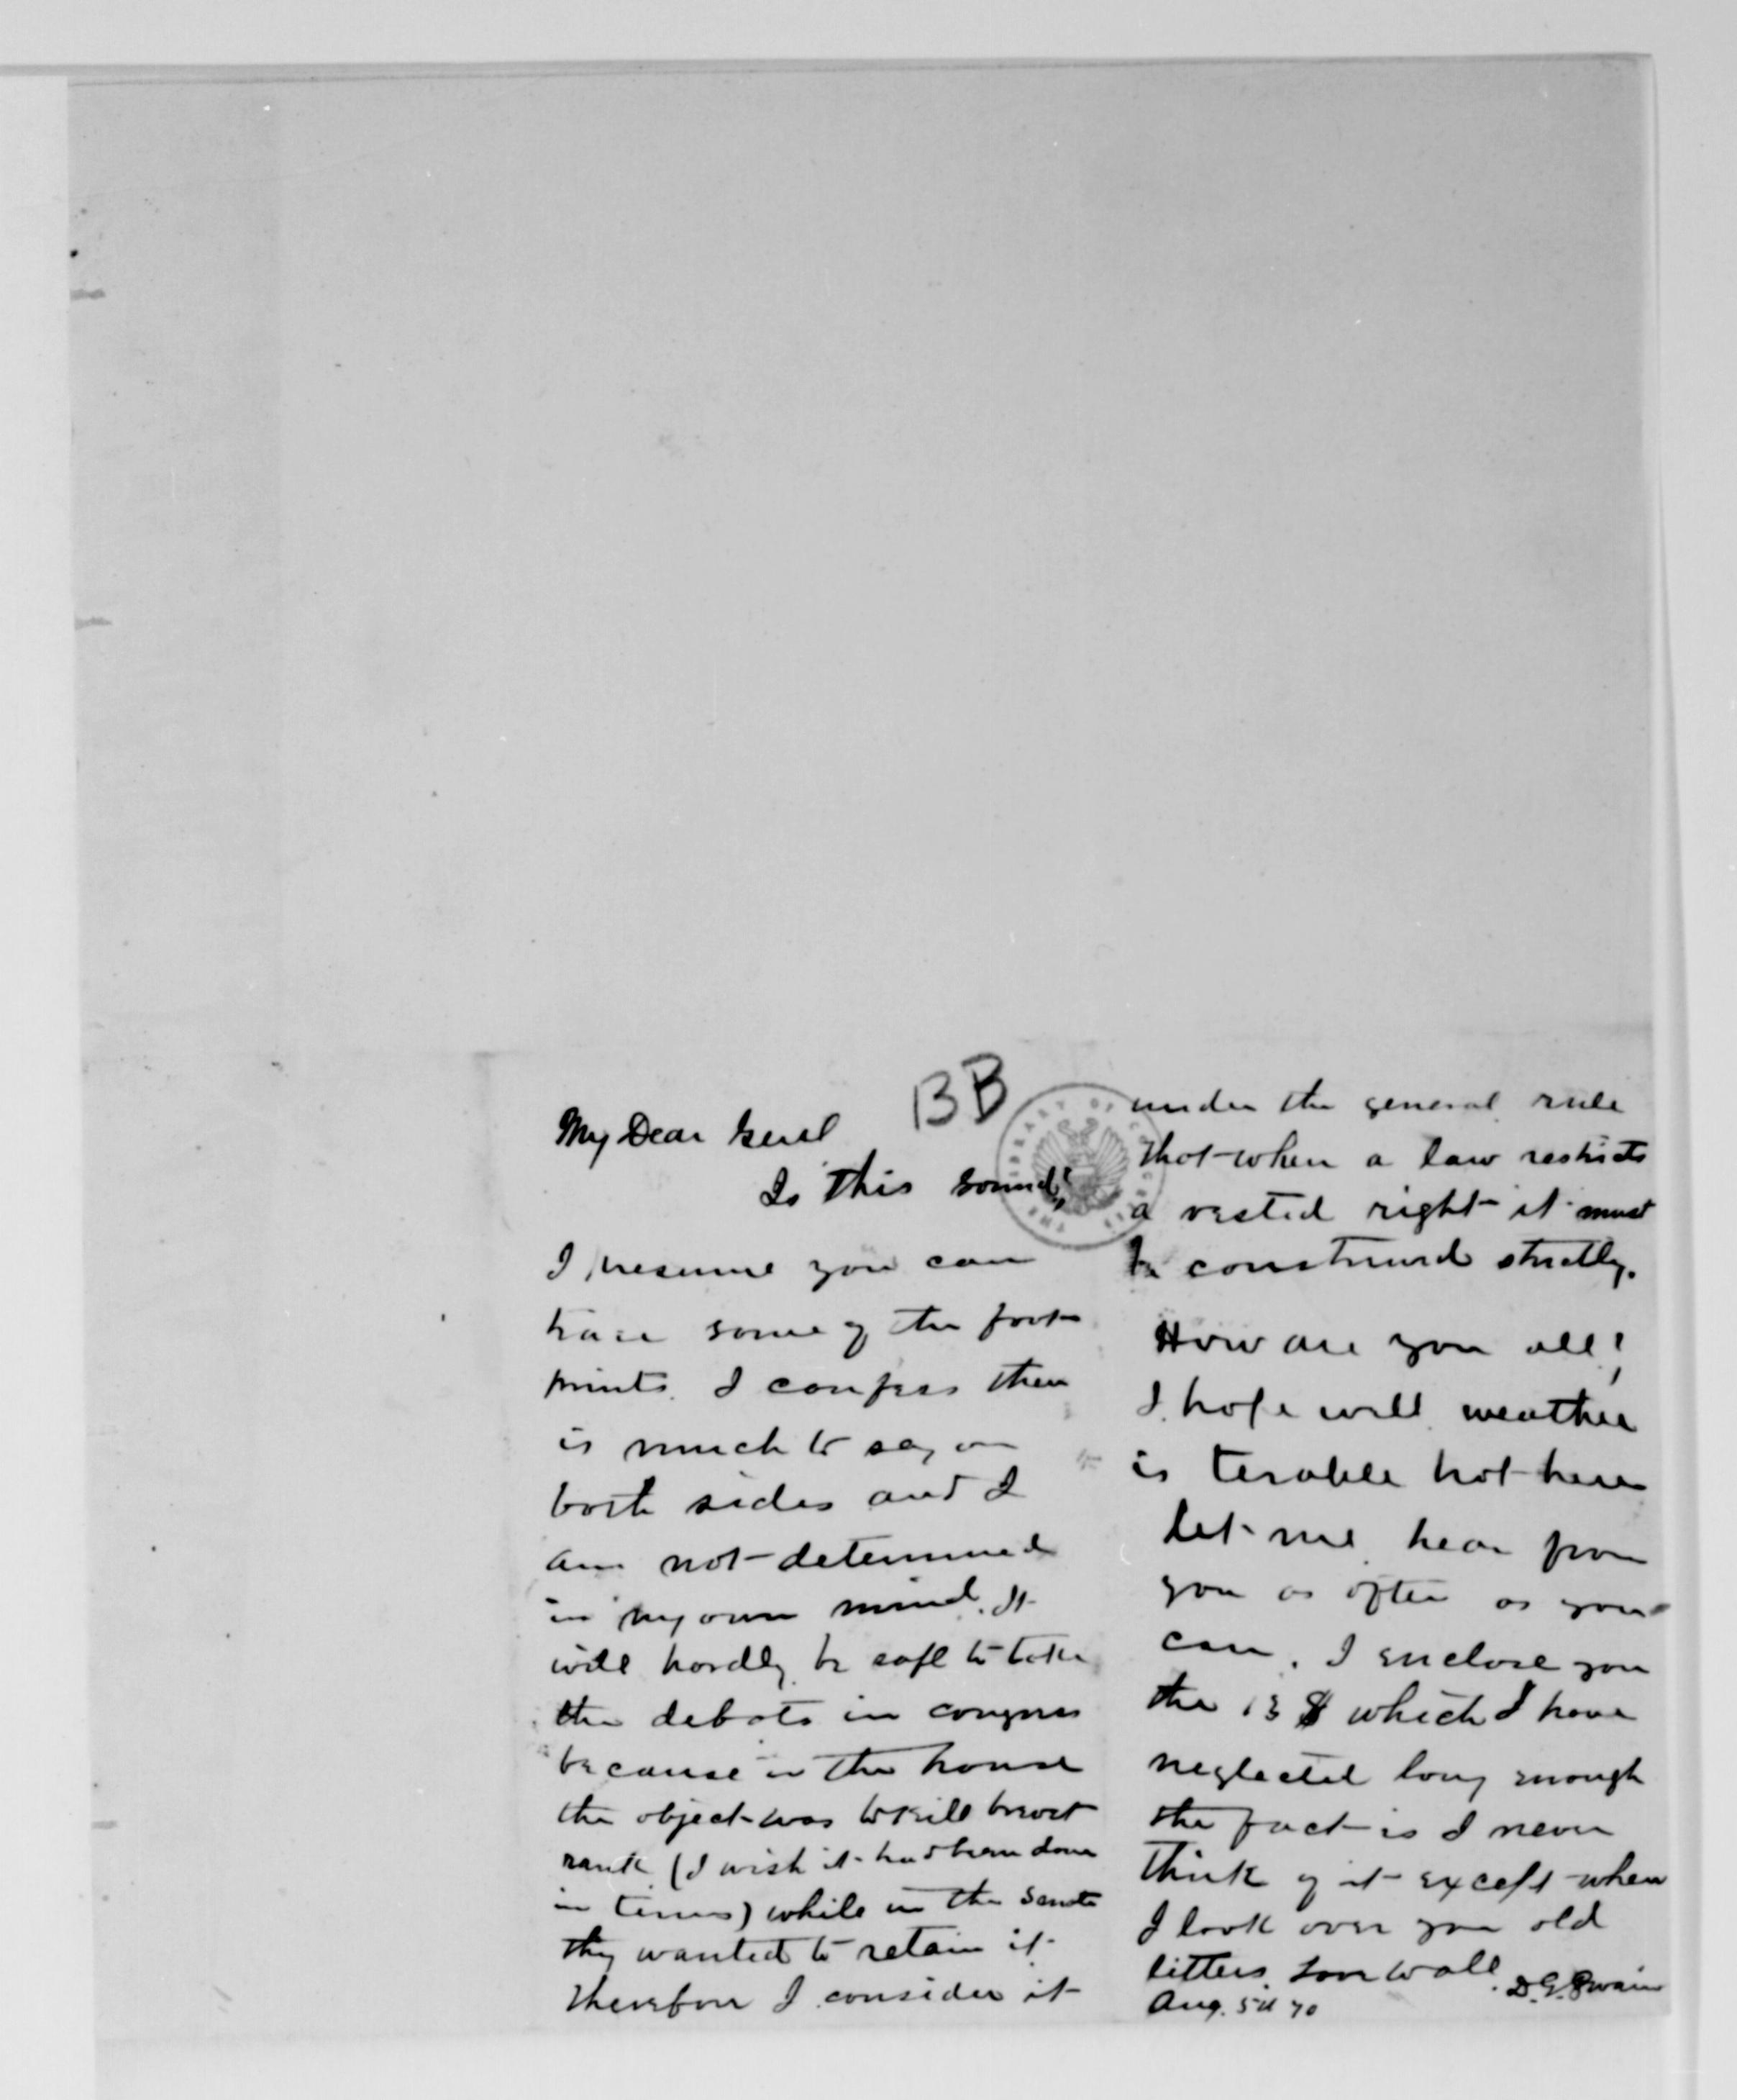 BB
My Dear Genl
Is this sound?
I presume you can
trace some of the foot
prints. I confess there
is much to say on
both sides and I
am not determined
in my own mind. It
will hardly be safe to take
the debats in congress
because in the house
the object was to kill brevet
rank (I wish it had been done
in terms) while in the Senate
they wanted to retain it
therefore I consider it
under the general rule
that when a law restricts
a vested right it must
be construed strictly.
How are you all?
I hope well weather
is terable hot here
Let me hear from
you as often as you
can. I enclose you
the 13 $ which I have
neglected long enough
the fact is I never
think of it except when
I look over your old
letters. Love to all. D.G. Swaim
Aug. 5th 70
THE LIBRARY OF CONGRESS